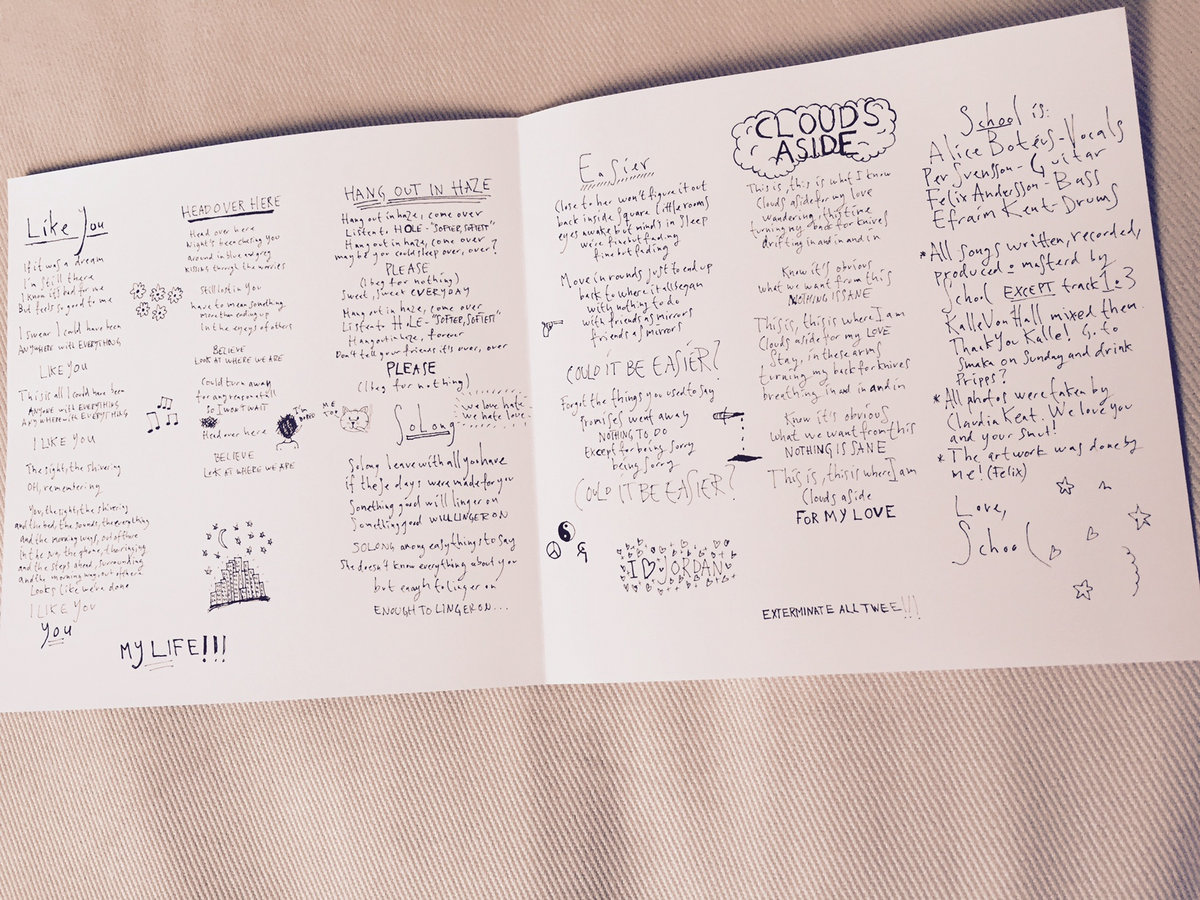 Like You
If it was a dream
I'm still there
I know it's bad for me
But feels so good to me
I swear I could have been
ANYWHERE with EVERYTHING
LIKE YOU
This is all I could have been
ANYONE with EVERYTHING
ANYWHERE with EVERYTHING
I LIKE YOU
The sights, the shivering
Oh, remembering
You, the sights, the shivering
and the bed, the sounds, the everything
and the morning ways, out of there
In the sun, the phone, the ringing
and the steps ahead, surrounding
and the morning way out of there
Looks like we're done
I LIKE YOU
You
MY LIFE!!!
HEAD OVER HERE
Head over here
Night's been chasing you
around in blue and grey
KISSING through the movies
Still lost in you
have to mean something
more than ending up
In the eyes of others
BELIEVE
LOOK AT WHERE WE ARE
Could turn away
for any reason at all
So I won't WAIT
Head over here
I'm BORED
ME TOO
BELIEVE
LOOK AT WHERE WE ARE
HANG OUT IN HAZE
Hang out in haze, come over
Listen to HOLE - "SOFTER, SOFTEST"
Hang out in haze, come over
maybe you could sleep over, over?
PLEASE
(I beg for nothing)
Sweet, sweet EVERYDAY
Hang out in haze, come over
Listen to HOLE - "SOFTER, SOFTEST"
Hang out in haze, forever
Don't tell your friends it's over, over
PLEASE
(I beg for nothing)
we love hate
we hate love
So Long
So long, leave with all you have
if these days were made for you
Something good will linger on
Something good WILL LINGER ON
SO LONG among easy things to say
She doesn't know everything about you
but enough to linger on
ENOUGH TO LINGER ON...
Easier
Close to her won't figure it out
back inside square little rooms
eyes awake but minds in sleep
we're fine but fading
fine but fading
Move in rounds just to end up
back to where it all began
with nothing to do
with friends as mirrors
friends as mirrors
COULD IT BE EASIER?
Forgot the things you used to say
Promises went away
NOTHING TO DO
Except for being sorry
being sorry
COULD IT BE EASIER?
I ♡ JORDAN
CLOUDS
ASIDE
This is, this is what I know
Clouds aside for my love
wandering in this time
turning my back for knives
drifting in and in and in
Know it's obvious
what we want from this
NOTHING IS SANE
This is, this is where I am
Clouds aside for my LOVE
Stay, in these arms
turning my back for knives
breathing in and in and in
Know it's obvious
what we want from this
NOTHING IS SANE
This is, this is where I am
Clouds aside
FOR MY LOVE
EXTERMINATE ALL TWEE!!!
School is:
Alice Botéus - Vocals
Per Svensson - Guitar
Felix Andersson - Bass
Efraim Kent - Drums
* All songs written, recorded,
produced & masterd by
School EXCEPT track 1 & 3
Kalle Von Hall mixed them.
Thank You Kalle! Go to
Smaka on Sunday and drink
Pripps?
* All photos were taken by
Claudia Kent. We love you
and your snut!
* The artwork was done by
me! (Felix)
Love,
School